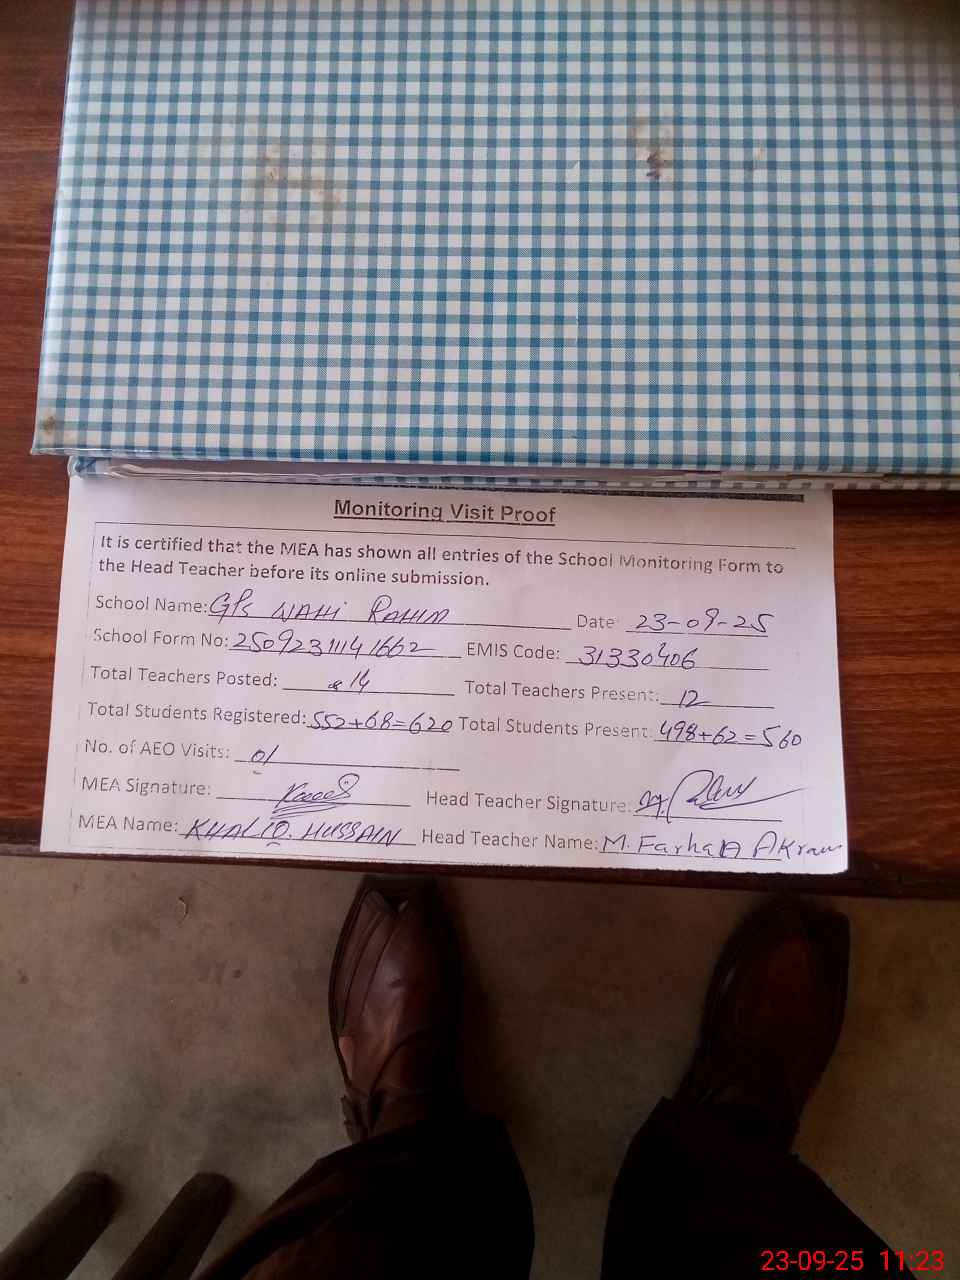 Monitoring Visit Proof
It is certified that the MEA has shown all entries of the School Monitoring Form to
the Head Teacher before its online submission.
School Name: GPS WAHI RAHIM Date: 23-09-25
School Form No: 25092311141662 EMIS Code: 31330406
Total Teachers Posted: 14 Total Teachers Present: 12
Total Students Registered: 552+68=620 Total Students Present: 498+62=560
No. of AEO Visits: 01
MEA Signature: Head Teacher Signature:
MEA Name: KHALIQ. HUSSAIN Head Teacher Name: M. Farhan Akram
23-09-25 11:23